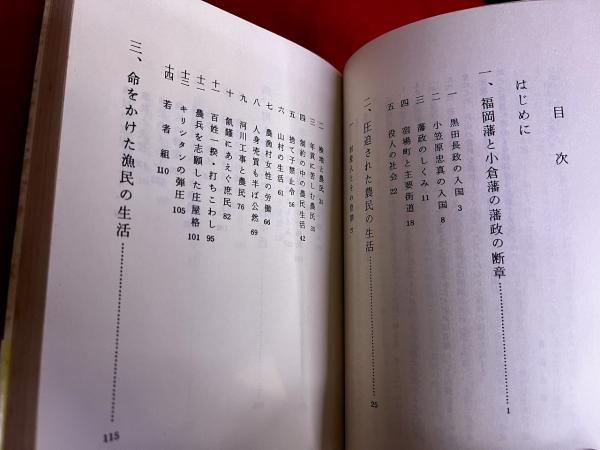 目次
はじめに
一、福岡藩と小倉藩の藩政の断章 1
一 黒田長政の入国 3
二 小笠原忠真の入国 8
三 藩政のしくみ 11
四 宿場町と主要街道 18
五 役人の社会 22
二、圧迫された農民の生活 25
二 検地と農民
三 年貢に苦しむ農民
四 制約の中の農民生活 42
五 捨て子禁止令 56
六 山村の生活 61
七 農漁村女性の労働 66
八 人身売買も半ば公然 69
九 河川工事と農民 76
十 飢饉にあえぐ庶民 82
十一 百姓一揆・打ちこわし 95
十二 農兵を志願した庄屋格 101
十三 キリシタンの弾圧 105
十四 若者組 110
三、命をかけた漁民の生活 115